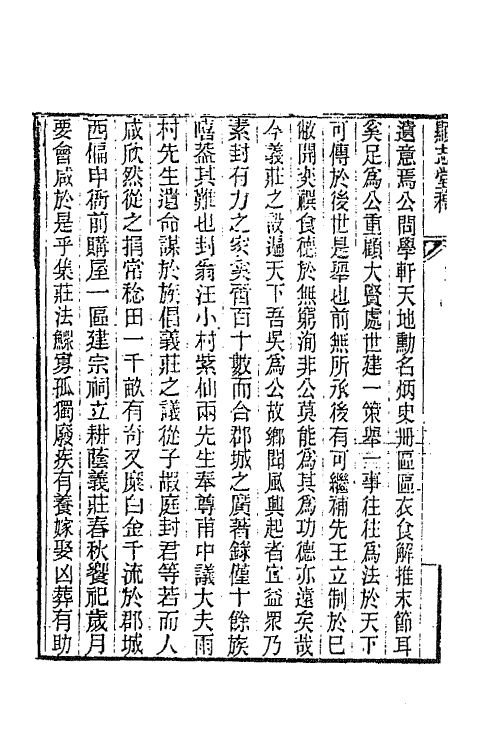 顯志堂稿
遺意焉公問學軒天地勳名炳史冊區區衣食解推末節耳
奚足爲公重顧大賢處世建一策舉一事往往爲法於天下
可傳於後世是舉也前無所承後有可繼補先王立制於已
敝開奕禩食德於無窮洵非公莫能爲其爲功德亦遠矣哉
今義莊之設遍天下吾吳爲公故鄉聞風興起者宜益眾乃
素封有力之家奚啻百十數而合郡城之廣著錄僅十餘族
嘻葢其難也封翁汪小村紫仙兩先生奉尊甫中議大夫雨
村先生遺命謀於族倡義莊之議從子嘏庭封君等若而人
咸欣然從之捐常稔田一千畝有奇又糜白金千流於郡城
西偏申衙前購屋一區建宗祠立耕蔭義莊春秋饗祀歲月
要會咸於是乎集莊法鰥寡孤獨廢疾有養嫁娶凶葬有助